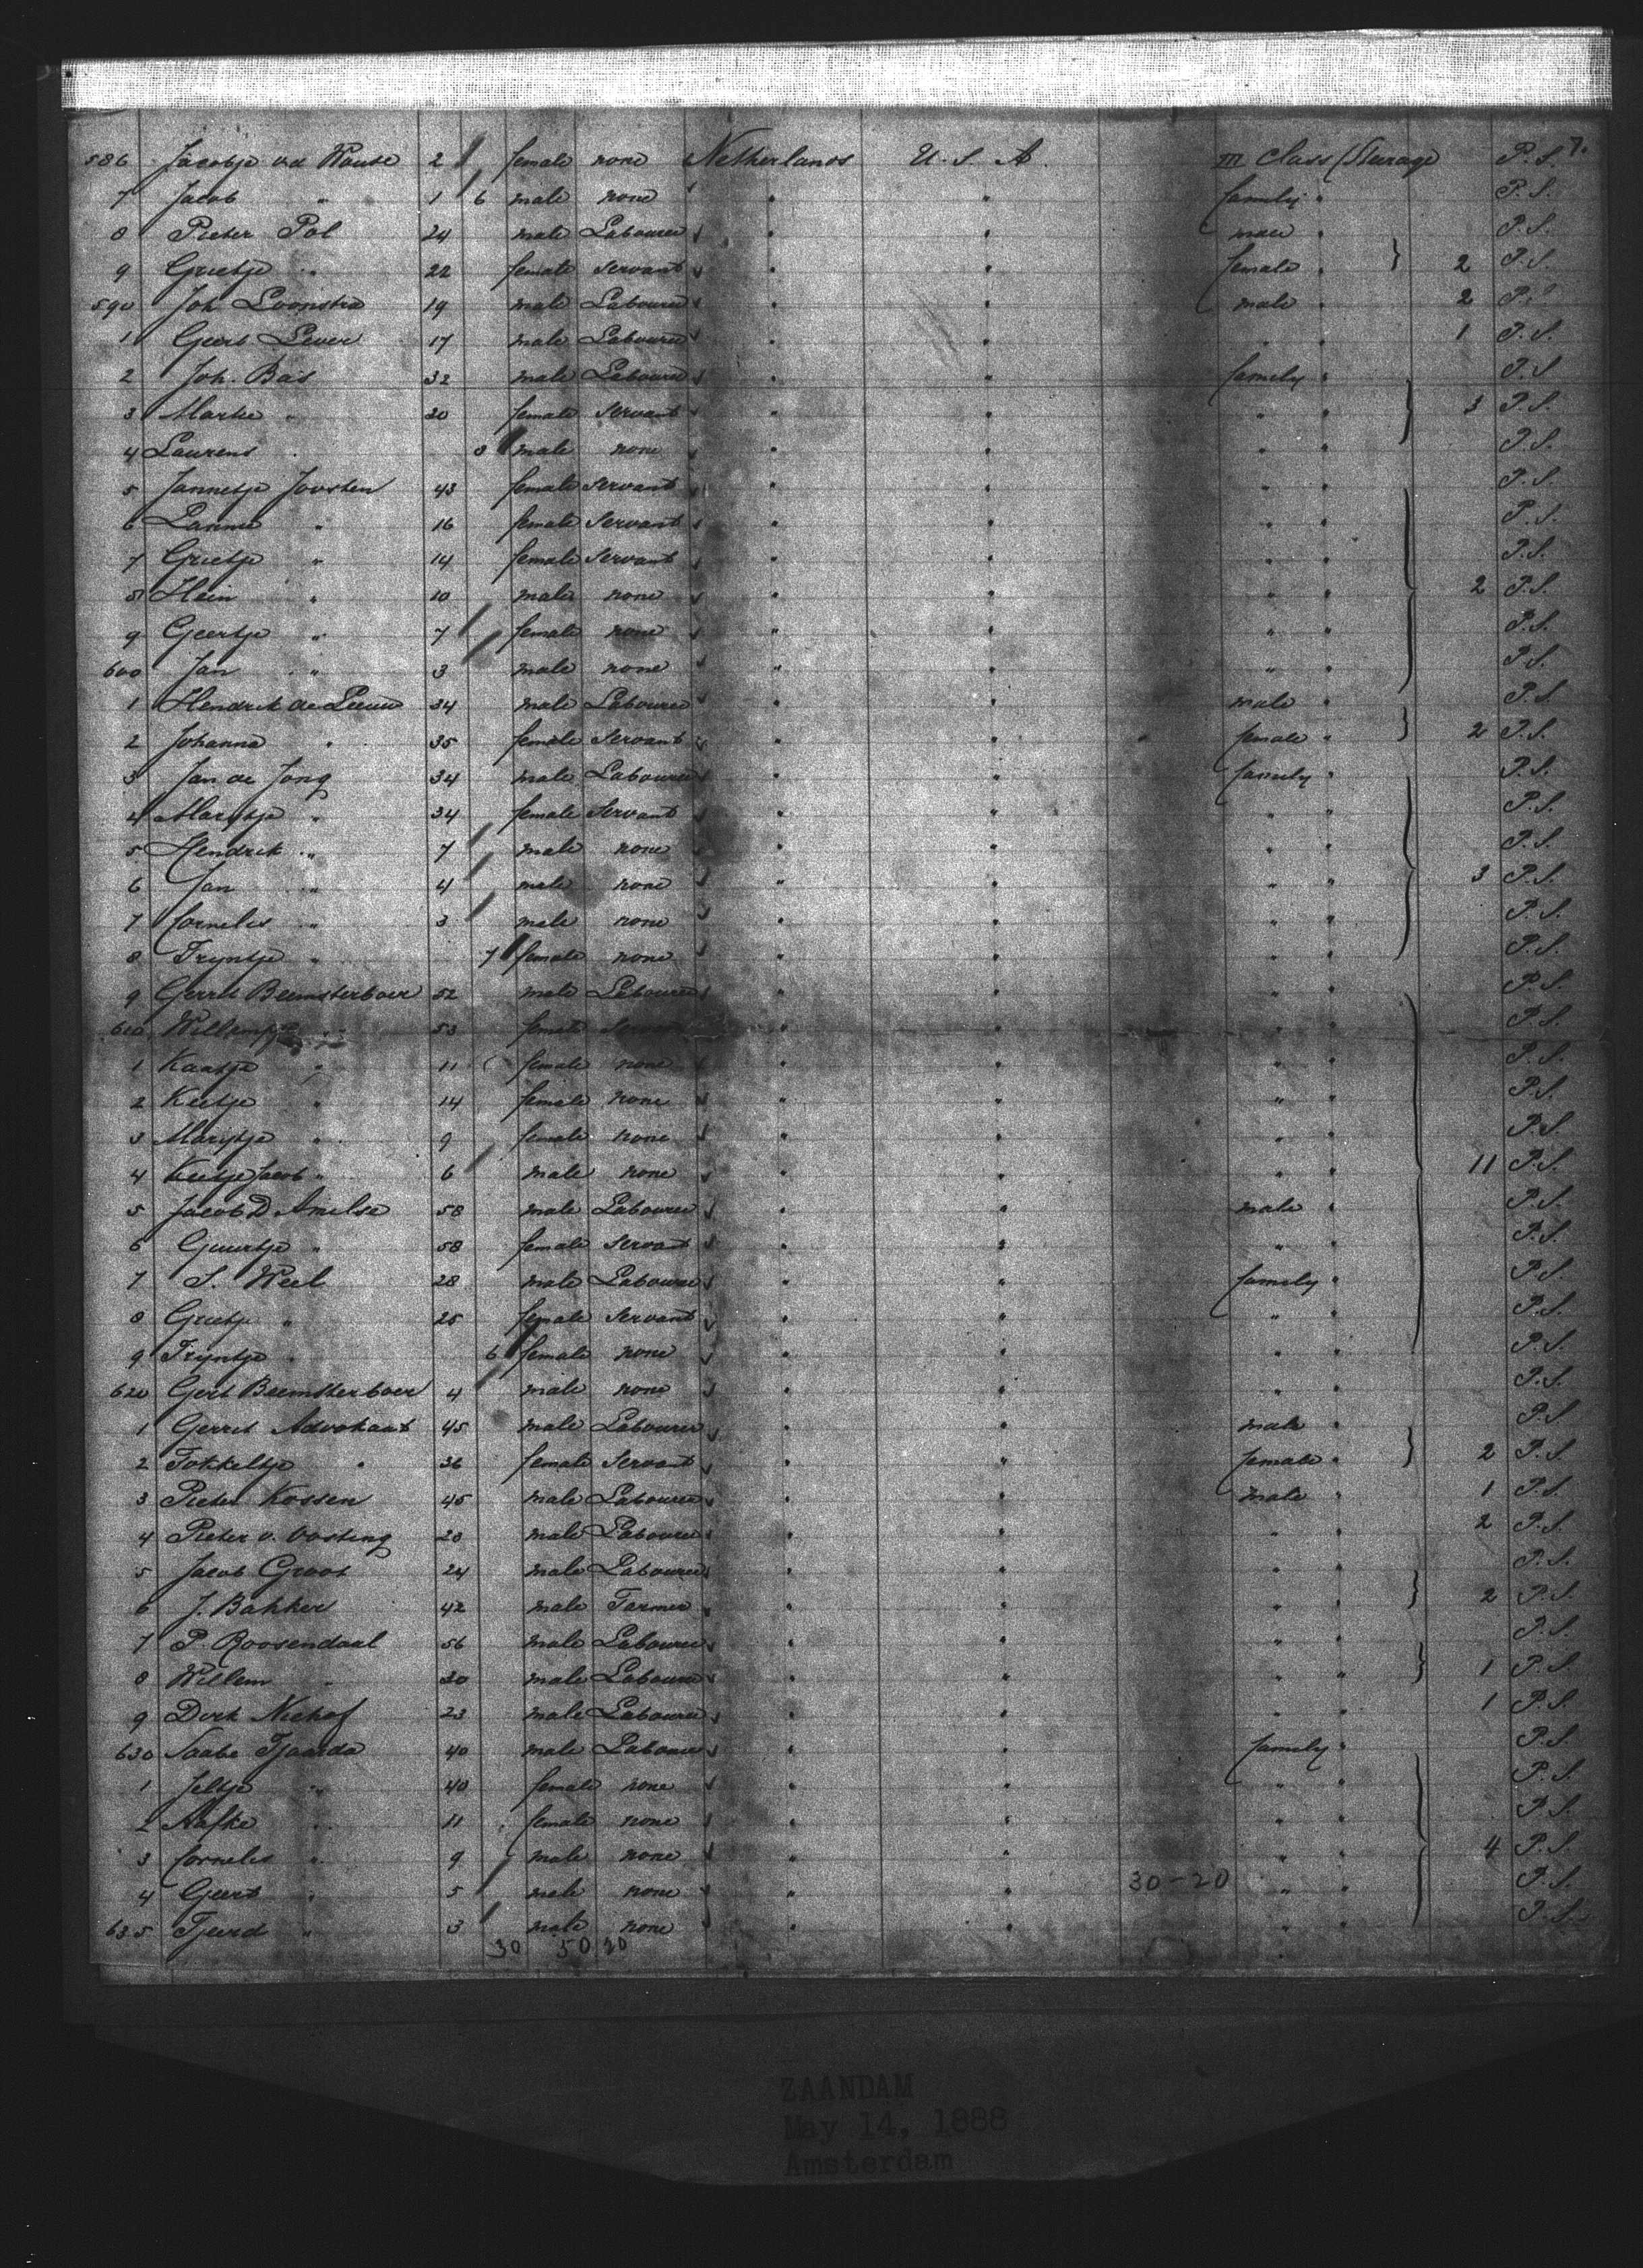 7.
586 Jacobje vd Woude 2 female none Netherlands U. S. A. III Class (Steerage P. S.
7 Jacob " 1 6 male none " " family " P. S.
8 Pieter Pol 24 male Labourer " " male " P. S.
9 Grietje " 22 female Servant " " female " } 2 P. S.
590 Joh. Loonstra 19 male Labourer " " male " 2 P. S.
1 Geert Lever 17 male Labourer " " " " 1 P. S.
2 Joh. Bas 32 male Labourer " " family " P. S.
3 Martie " 30 female Servant " " " " } 3 P. S.
4 Laurens " 8 male none " " " " P. S.
5 Jannetje Joosten 43 female Servant " " " " P. S.
6 Lannie " 16 female Servant " " " " P. S.
7 Grietje " 14 female Servant " " " " P. S.
8 Hein " 10 male none " " " " } 2 P. S.
9 Geertje " 7 female none " " " " P. S.
600 Jan " 3 male none " " " " P. S.
1 Hendrik de Leeuw 34 male Labourer " " male " P. S.
2 Johanna " 35 female Servant " " female " } 2 P. S.
3 Jan de Jong 34 male Labourer " " family " P. S.
4 Marijtje " 34 female Servant " " " " P. S.
5 Hendrik " 7 male none " " " " P. S.
6 Jan " 4 male none " " " " } 3 P. S.
7 Cornelis " 3 male none " " " " P. S.
8 Tryntje " 7 female none " " " " P. S.
9 Gerrit Beemsterboer 52 male Labourer " " " " P. S.
610 Willempje " 53 female Servant " " " " P. S.
1 Kaatje " 11 female none " " " " P. S.
2 Keetje " 14 female none " " " " P. S.
3 Marijtje " 9 female none " " " " P. S.
4 Keetje Jacob " 6 male none " " " " } 11 P. S.
5 Jacob D Amelse 58 male Labourer " " male " P. S.
6 Guurtje " 58 female Servant " " " " P. S.
7 S. Weel 28 male Labourer " " family " P. S.
8 Grietje " 25 female Servant " " " " P. S.
9 Tryntje " 6 female none " " " " P. S.
620 Gert Beemsterboer 4 male none " " " " P. S.
1 Gerrit Advokaat 45 male Labourer " " male " P. S.
2 Tokkeltje " 36 female Servant " " female " } 2 P. S.
3 Pieter Kossen 45 male Labourer " " male " 1 P. S.
4 Pieter v. Oosting 23 male Labourer " " " " 2 P. S.
5 Jacob Groot 24 male Labourer " " " " P. S.
6 J. Bakker 42 male Farmer " " " " } 2 P. S.
7 P. Roosendaal 56 male Labourer " " " " P. S.
8 Willem " 30 male Labourer " " " " } 1 P. S.
9 Dirk Niehof 23 male Labourer " " " " 1 P. S.
630 Saabe Tjaarda 40 male Labourer " " family " P. S.
1 Jeltje " 40 female none " " " " P. S.
2 Aafke " 11 female none " " " " P. S.
3 Cornelis " 9 male none " " " " } 4 P. S.
4 Geert " 5 male none " " 30-20 " " P. S.
635 Tjeerd " 3 male none " " " " P. S.
30 50 20
ZAANDAM
May 14, 1888
Amsterdam